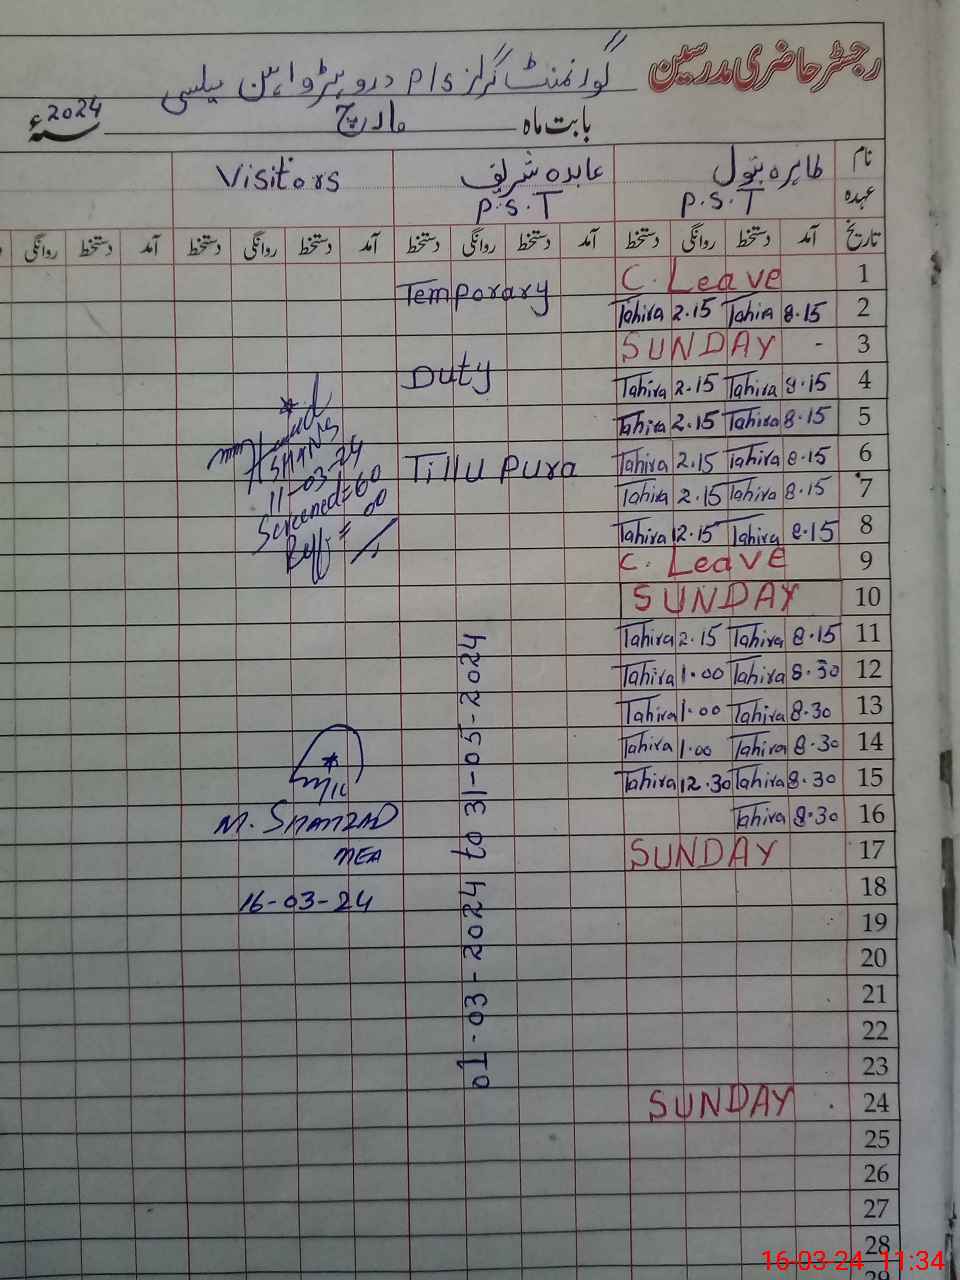 رجسٹر حاضری مدرسین
گورنمنٹ گرلز P/S دروہڑ واہن میلسی
بابت ماہ مارچ سنہ 2024ء
نام طاہرہ بتول عابدہ شریف Visitors
عہدہ P.S.T P.S.T
تاریخ آمد دستخط روانگی دستخط آمد دستخط روانگی دستخط آمد دستخط روانگی دستخط آمد دستخط روانگی
1 C. Leave
Temporary
2 8.15 Tahira 2.15 Tahira
3 SUNDAY -
Duty
4 8.15 Tahira 2.15 Tahira
5 8.15 Tahira 2.15 Tahira
6 8.15 Tahira 2.15 Tahira
Tillu Pura
7 8.15 Tahira 2.15 Tahira
8 8.15 Tahira 12.15 Tahira
9 C. Leave
10 SUNDAY
11 8.15 Tahira 2.15 Tahira
12 8.30 Tahira 1.00 Tahira
13 8.30 Tahira 1.00 Tahira
14 8.30 Tahira 1.00 Tahira
15 8.30 Tahira 12.30 Tahira
16 8.30 Tahira
17 SUNDAY
18
19
20
21
22
23
24 SUNDAY
25
26
27
28
29
01-03-2024 to 31-05-2024
SH&NS
11-03-24
Screened=60
Reff = 00
M. SHAHZAD
MEA
16-03-24
16-03-24 11:34